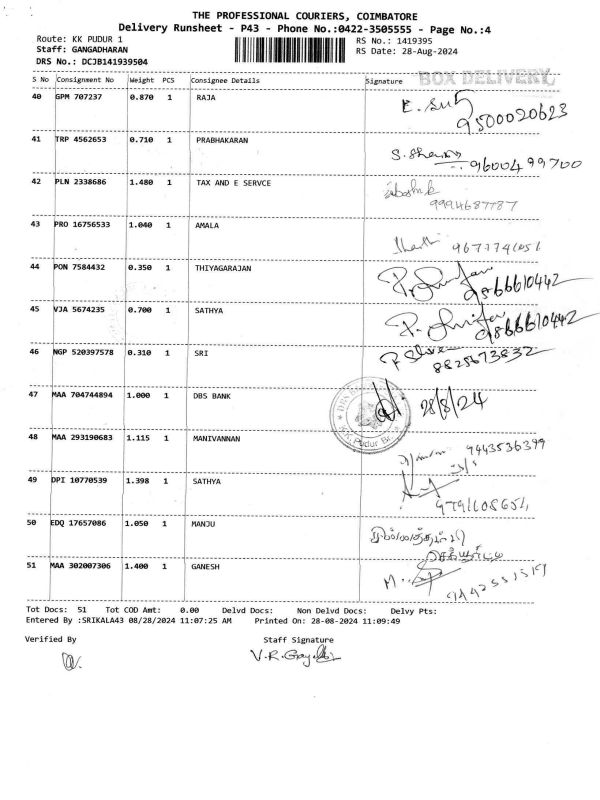 THE PROFESSIONAL COURIERS, COIMBATORE
Delivery Runsheet - P43 - Phone No.:0422-3505555 - Page No.:4
Route: KK PUDUR 1 RS No.: 1419395
Staff: GANGADHARAN RS Date: 28-Aug-2024
DRS No.: DCJB141939504
BOX DELIVERY
S No Consignment No Weight PCS Consignee Details Signature
40 GPM 707237 0.870 1 RAJA
9500020623
41 TRP 4562653 0.710 1 PRABHAKARAN
9600499700
42 PLN 2338686 1.480 1 TAX AND E SERVCE
9994687787
43 PRO 16756533 1.040 1 AMALA
44 PON 7584432 0.350 1 THIYAGARAJAN
9866610442
45 VJA 5674235 0.700 1 SATHYA
9866610442
46 NGP 520397578 0.310 1 SRI
8825673832
47 MAA 704744894 1.000 1 DBS BANK 28/8/24
48 MAA 293190683 1.115 1 MANIVANNAN 9443536399
49 DPI 10770539 1.398 1 SATHYA
50 EDQ 17657086 1.050 1 MANJU
51 MAA 302007306 1.400 1 GANESH
Tot Docs: 51 Tot COD Amt: 0.00 Delvd Docs: Non Delvd Docs: Delvy Pts:
Entered By :SRIKALA43 08/28/2024 11:07:25 AM Printed On: 28-08-2024 11:09:49
Verified By Staff Signature